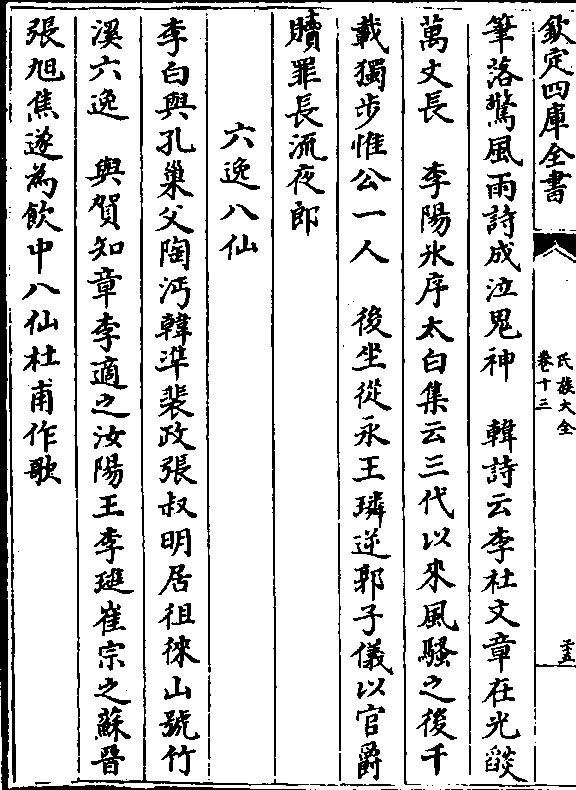 欽定四庫全書
氏族大全
卷十三
二五
筆落驚風雨詩成泣鬼神　韓詩云李杜文章在光燄
萬丈長　李陽氷序太白集云三代以來風騷之後千
載獨步惟公一人　後坐從永王璘逆郭子儀以官爵
贖罪長流夜郎
六逸八仙
李白與孔巢父陶沔韓準裴政張叔明居徂徠山號竹
溪六逸　與賀知章李適之汝陽王李璡崔宗之蘇晉
張旭焦遂為飲中八仙杜甫作歌